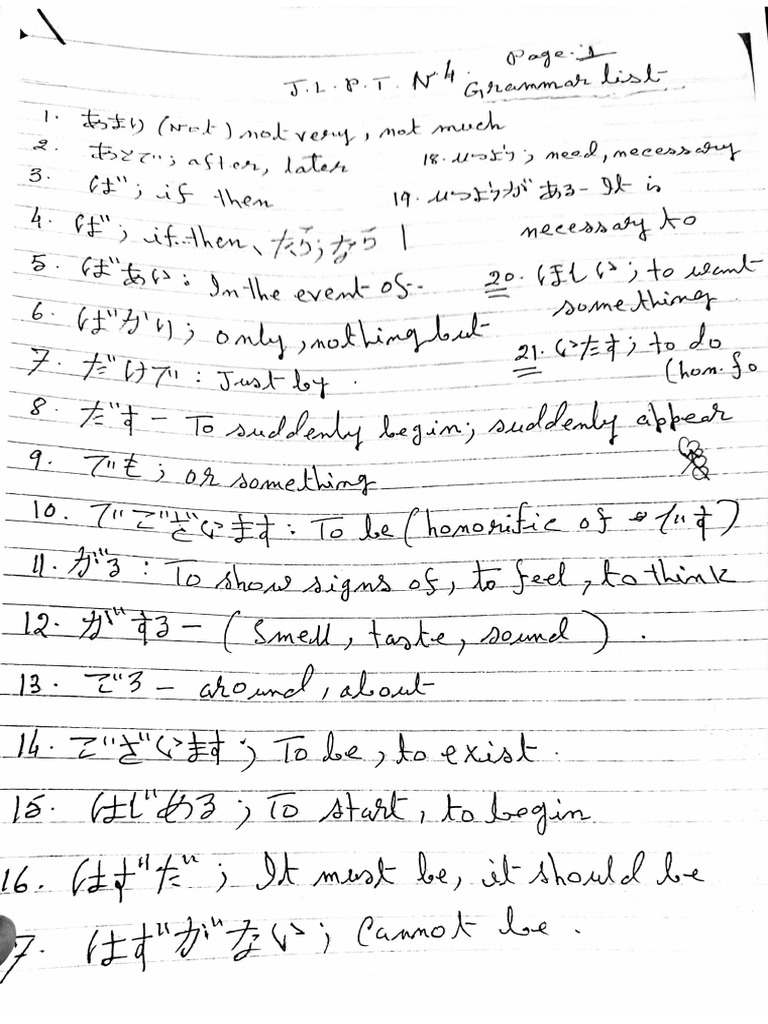 Page. 1
J.L.P.T. N4. Grammar list
1. あまり (Not) not very, not much
2. あとで; after, later
3. ば; if then
4. ば; if..then、たら; なら
5. ばあい: In the event of..
6. ばかり; only, nothing but
7. だけで: Just by.
8. だす - To suddenly begin; suddenly appear
9. でも; or something
10. でございます: To be (honorific of です)
11. がる: To show signs of, to feel, to think
12. がする - (Smell, taste, sound).
13. ごろ - around, about
14. ございます; To be, to exist.
15. はじめる; To start, to begin.
16. はずだ; It must be, it should be
7. はずがない; Cannot be.
18. ひつよう; need, necessary
19. ひつようがある - It is
necessary to
20. ほしい; to want
something
21. いたす; to do
(hon. fo